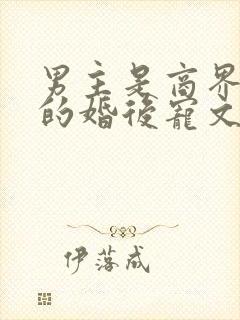 男主是商界
的婚後寵文
伊落成